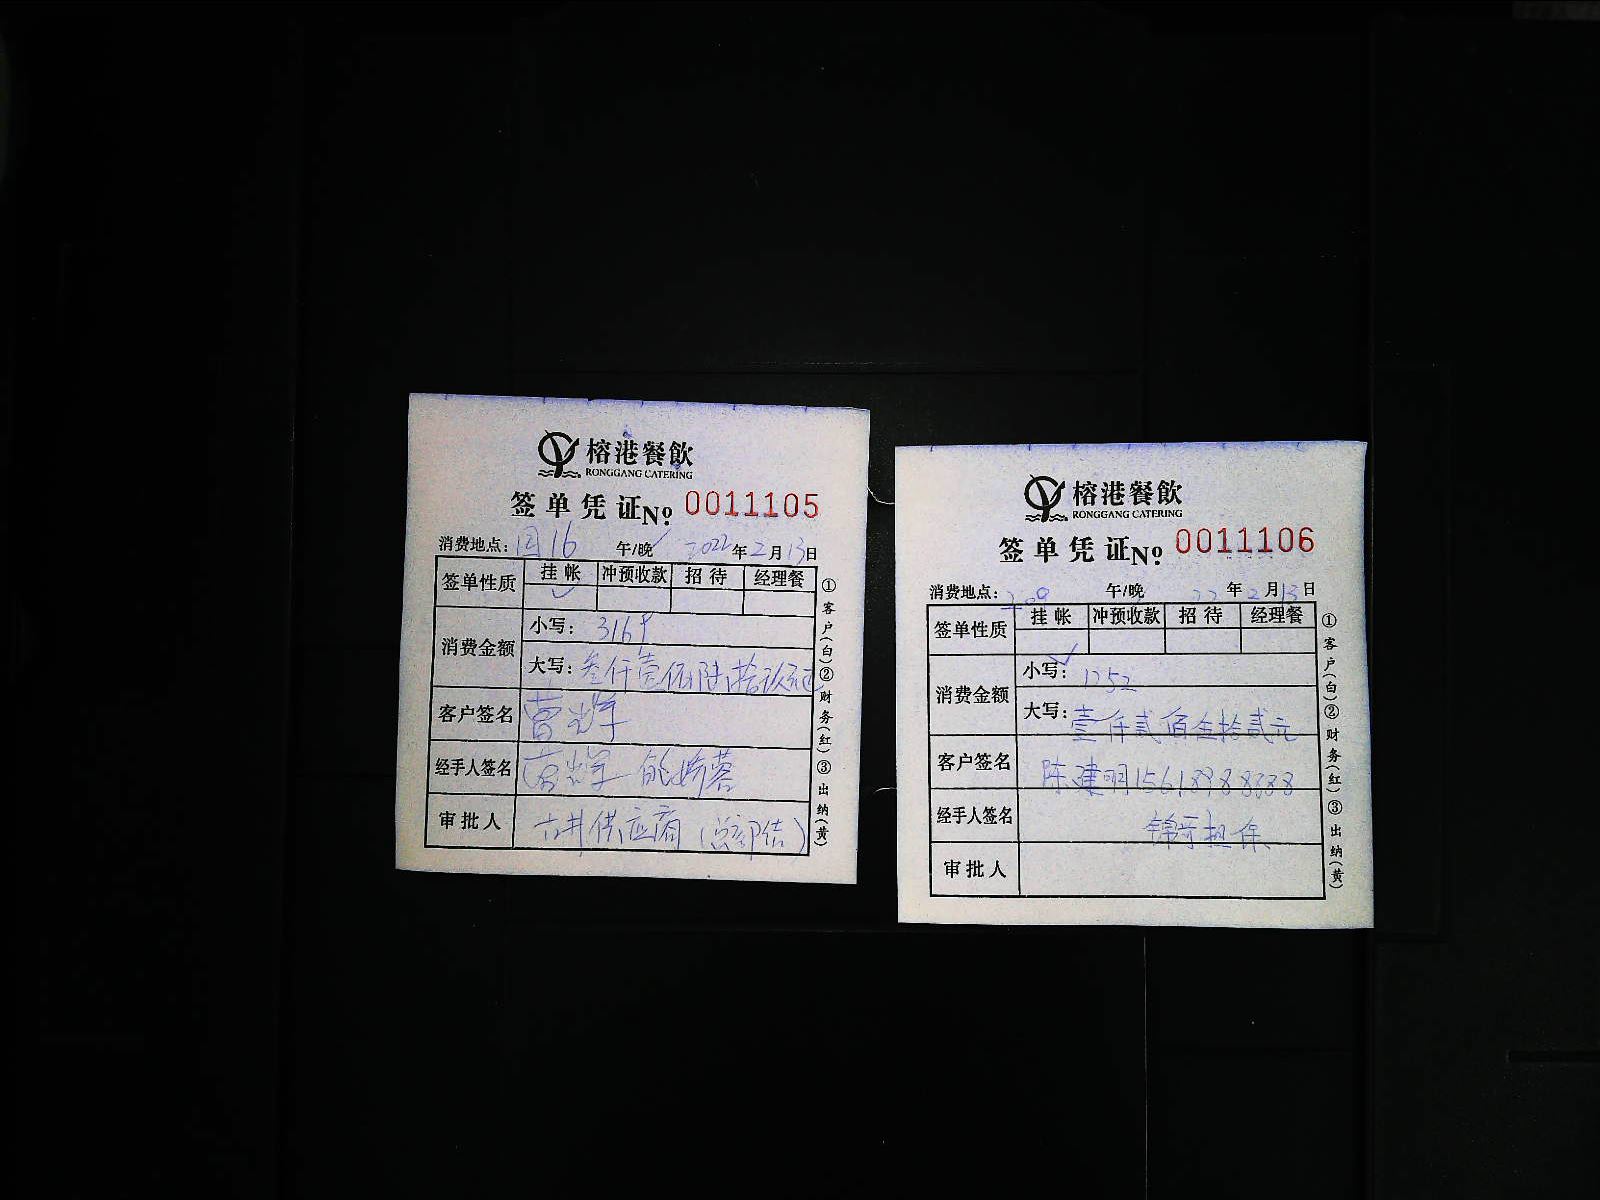 榕港餐飲
RONGGANG CATERING
签单凭证 No. 0011105
消费地点: 国16 午/晚✓ 2022年2月13日
签单性质 挂帐 冲预收款 招待 经理餐
✓
消费金额 小写: 3169
大写: 叁仟壹佰陆拾玖元正
客户签名
经手人签名
审批人 古井供应商(总部结)
①客户(白)②财务(红)③出纳(黄)
榕港餐飲
RONGGANG CATERING
签单凭证 No. 0011106
消费地点: 209 午/晚 22年2月13日
签单性质 挂帐 冲预收款 招待 经理餐
✓
消费金额 小写: 1252
大写: 壹仟贰佰伍拾贰元
客户签名 陈建明15618988888
经手人签名 担保
审批人
①客户(白)②财务(红)③出纳(黄)